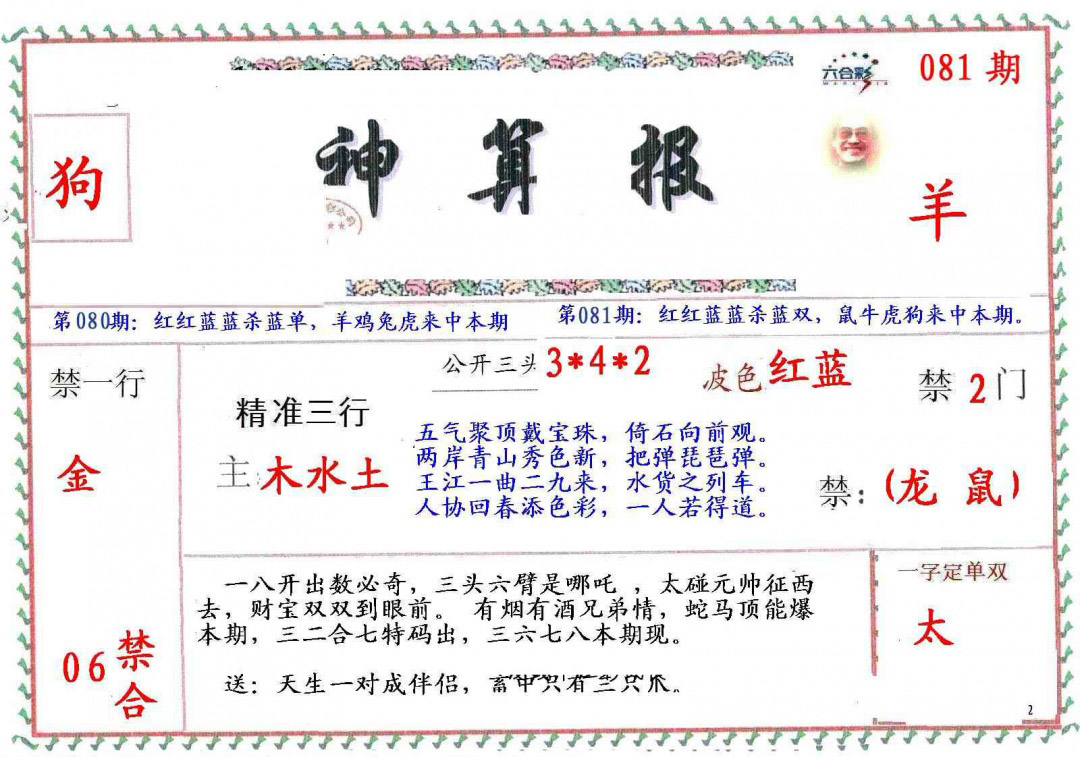 六合彩
081 期
狗
神算报
羊
第080期：红红蓝蓝杀蓝单，羊鸡兔虎来中本期
第081期：红红蓝蓝杀蓝双，鼠牛虎狗来中本期。
禁一行
金
06 禁合
精准三行
主：木水土
公开三头 3*4*2
波色 红蓝
五气聚顶戴宝珠，倚石向前观。
两岸青山秀色新，把弹琵琶弹。
王江一曲二九来，水货之列车。
人协回春添色彩，一人若得道。
禁 2 门
禁：(龙 鼠)
一八开出数必奇，三头六臂是哪吒 ，太碰元帅征西
去，财宝双双到眼前。 有烟有酒兄弟情，蛇马顶能爆
本期，三二合七特码出，三六七八本期现。
送：天生一对成伴侣，
一字定单双
太
2